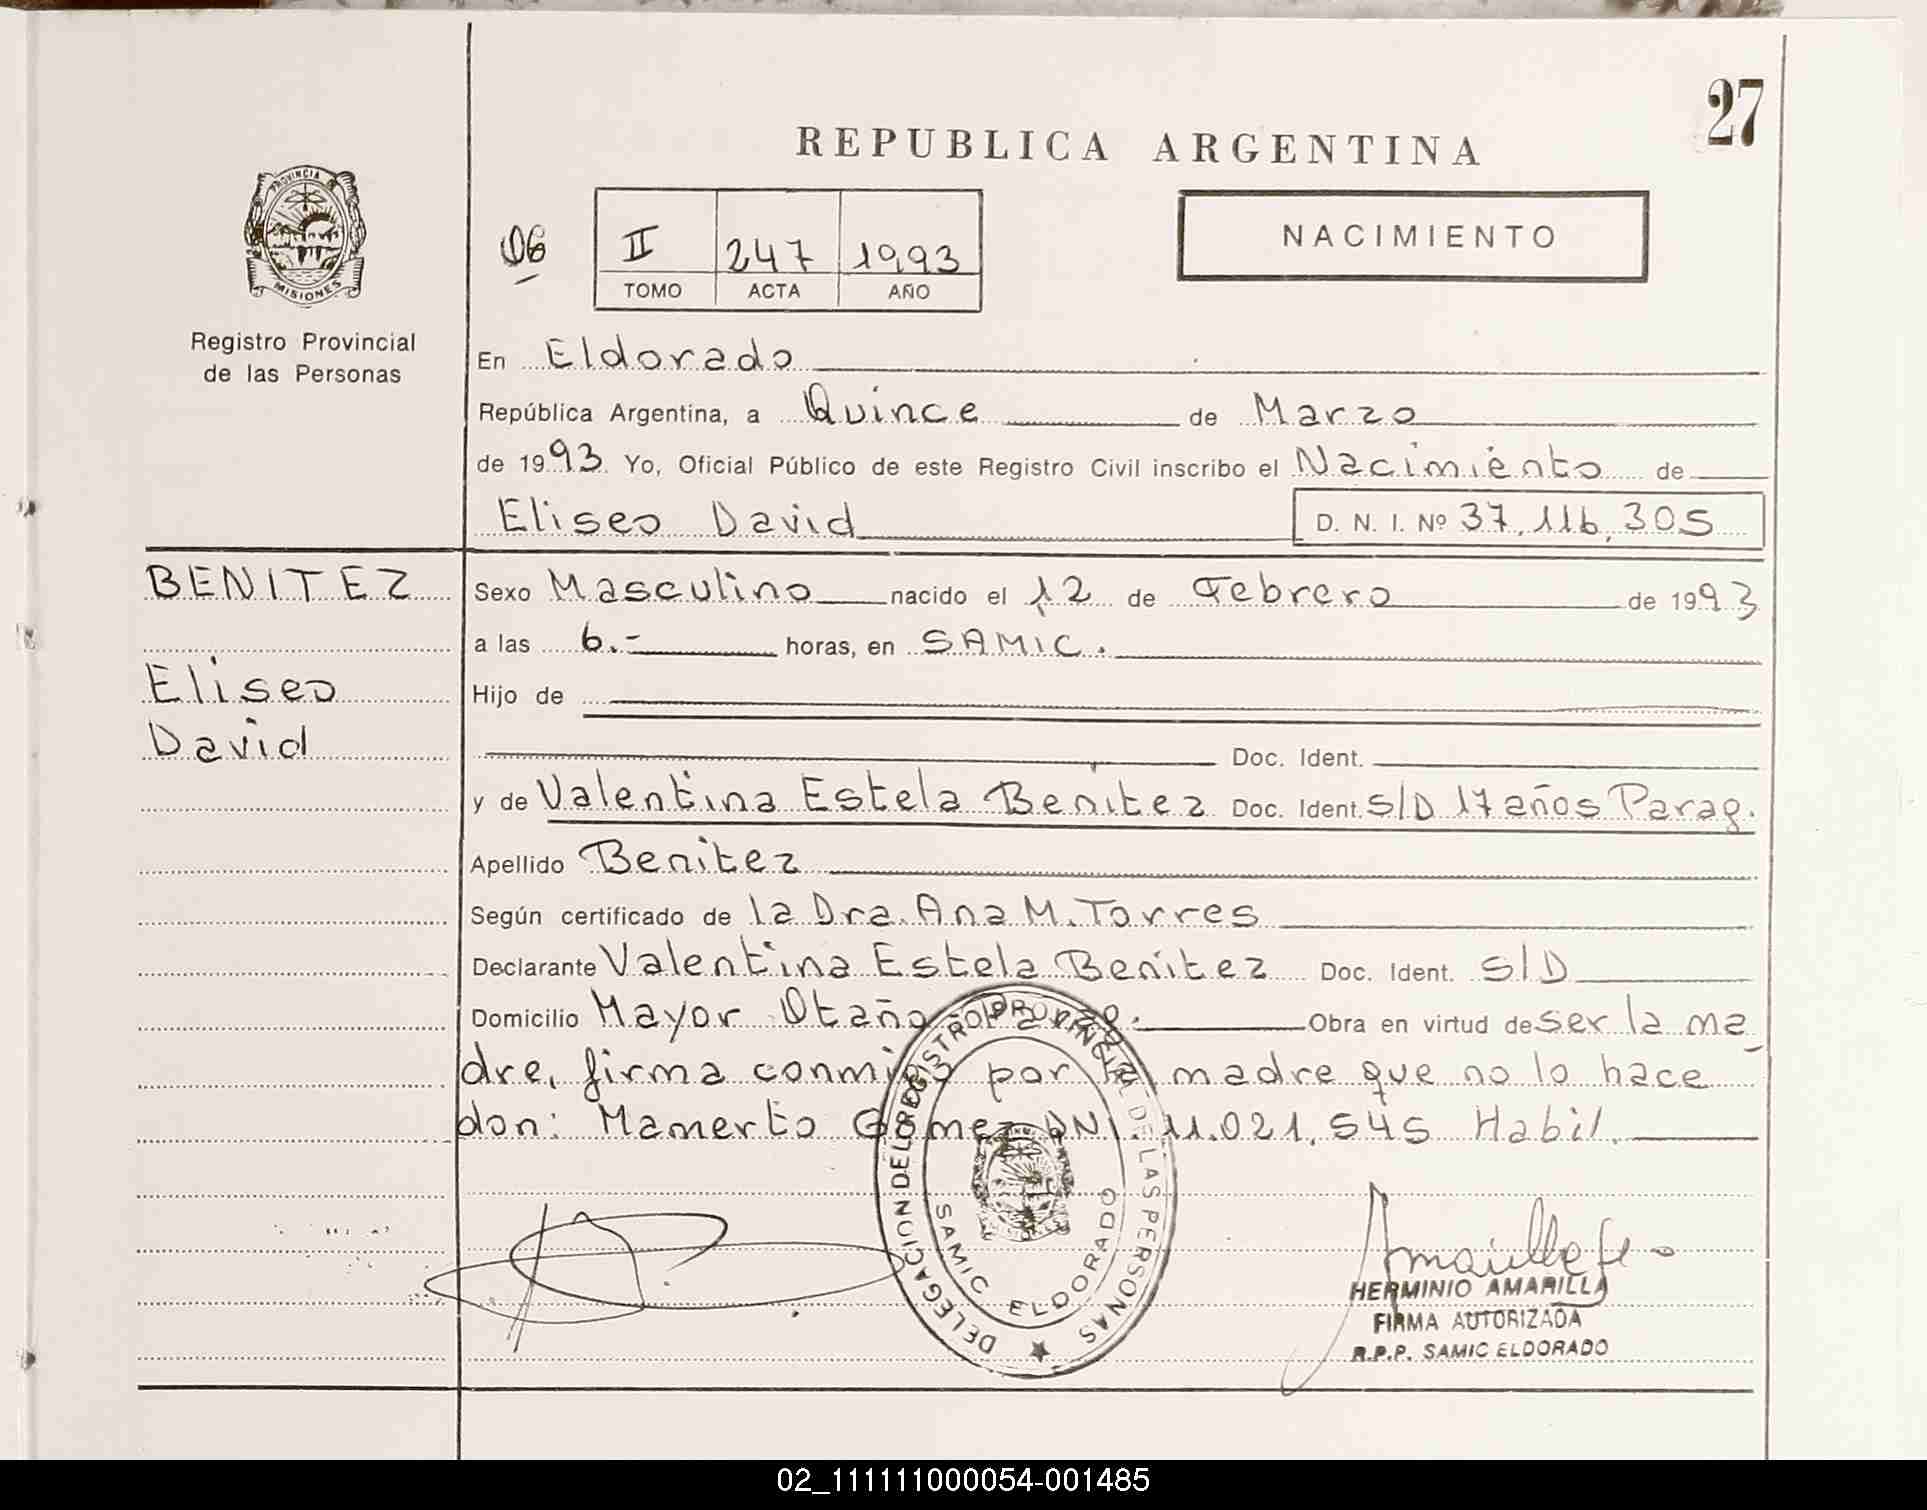 27
REPUBLICA ARGENTINA
PROVINCIA
MISIONES
Registro Provincial
de las Personas
06
II 247 1993
TOMO ACTA AÑO
NACIMIENTO
En Eldorado
República Argentina, a Quince de Marzo
de 1993 Yo, Oficial Público de este Registro Civil inscribo el Nacimiento de
Eliseo David D. N. I. Nº 37,116,305
BENITEZ
Eliseo
David
Sexo Masculino nacido el 12 de Febrero de 1993
a las 6.- horas, en SAMIC.
Hijo de
Doc. Ident.
y de Valentina Estela Benitez Doc. Ident. S/D 17 años Parag.
Apellido Benitez
Según certificado de la Dra. Ana M. Torres
Declarante Valentina Estela Benitez Doc. Ident. S/D
Domicilio Mayor Otaño Obra en virtud de ser la ma
dre, firma conmigo por la madre que no lo hace
don: Mamerto Gomez DNI. 11.021.545 Habil.
DELEGACION DEL REGISTRO PROVINCIAL DE LAS PERSONAS
SAMIC ELDORADO
HERMINIO AMARILLA
FIRMA AUTORIZADA
R.P.P. SAMIC ELDORADO
02_111111000054-001485